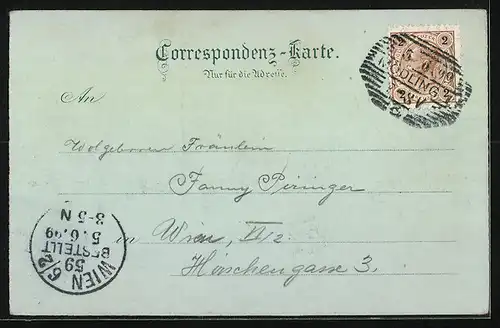 Correspondenz-Karte.
Nur für die Adresse.
An
Wolgeboren Fräulein
Fanny Piringer
in Wien,
Hirschengasse 3.
2
MÖDLING
WIEN 6/2
59
BESTELLT
5.6.99
3-5 N